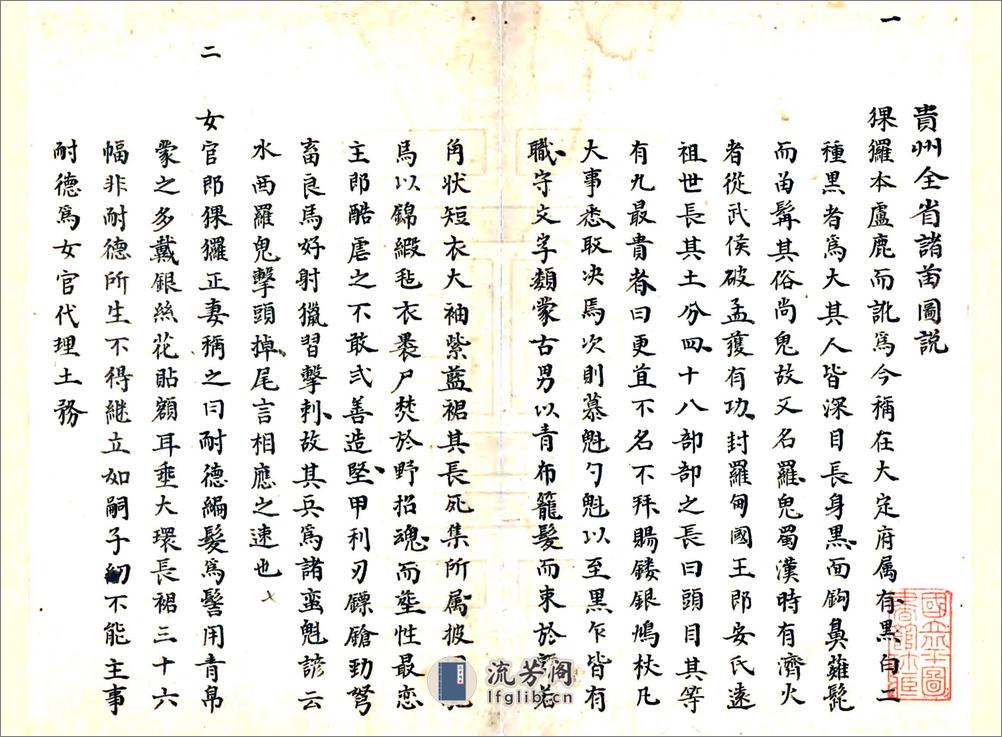 貴州全省諸苗圖説
一
猓玀本盧鹿而訛爲今稱在大定府属有黑白二
種黑者爲大其人皆深目長身黒面鈎鼻薙髭
而留髯其俗尚鬼故又名羅鬼蜀漢時有濟火
者從武侯破孟獲有功封羅甸國王即安氏遠
祖世長其土分四十八部部之長曰頭目其等
有九最貴者曰更苴不名不拜賜鏤銀鳩杖凡
大事悉取决焉次則慕魁勺魁以至黑乍皆有
職守文字類蒙古男以青布籠髮而束於額若
角状短衣大袖紫藍裙其長死集所属披甲
馬以錦緞毡衣褁尸焚於野招魂而塟性最恋
主即酷虐之不敢弍善造堅甲利刃鏢鎗劲弩
畜良馬好射獵習擊刺故其兵爲諸蛮魁諺云
水西羅鬼擊頭掉尾言相應之速也
二
女官即猓玀正妻稱之曰耐德編髮爲髻用青帛
蒙之多戴銀絲花貼額耳垂大環長裙三十六
幅非耐德所生不得継立如嗣子幼不能主事
耐德爲女官代理土務
一
流芳阁
lfglib.cn